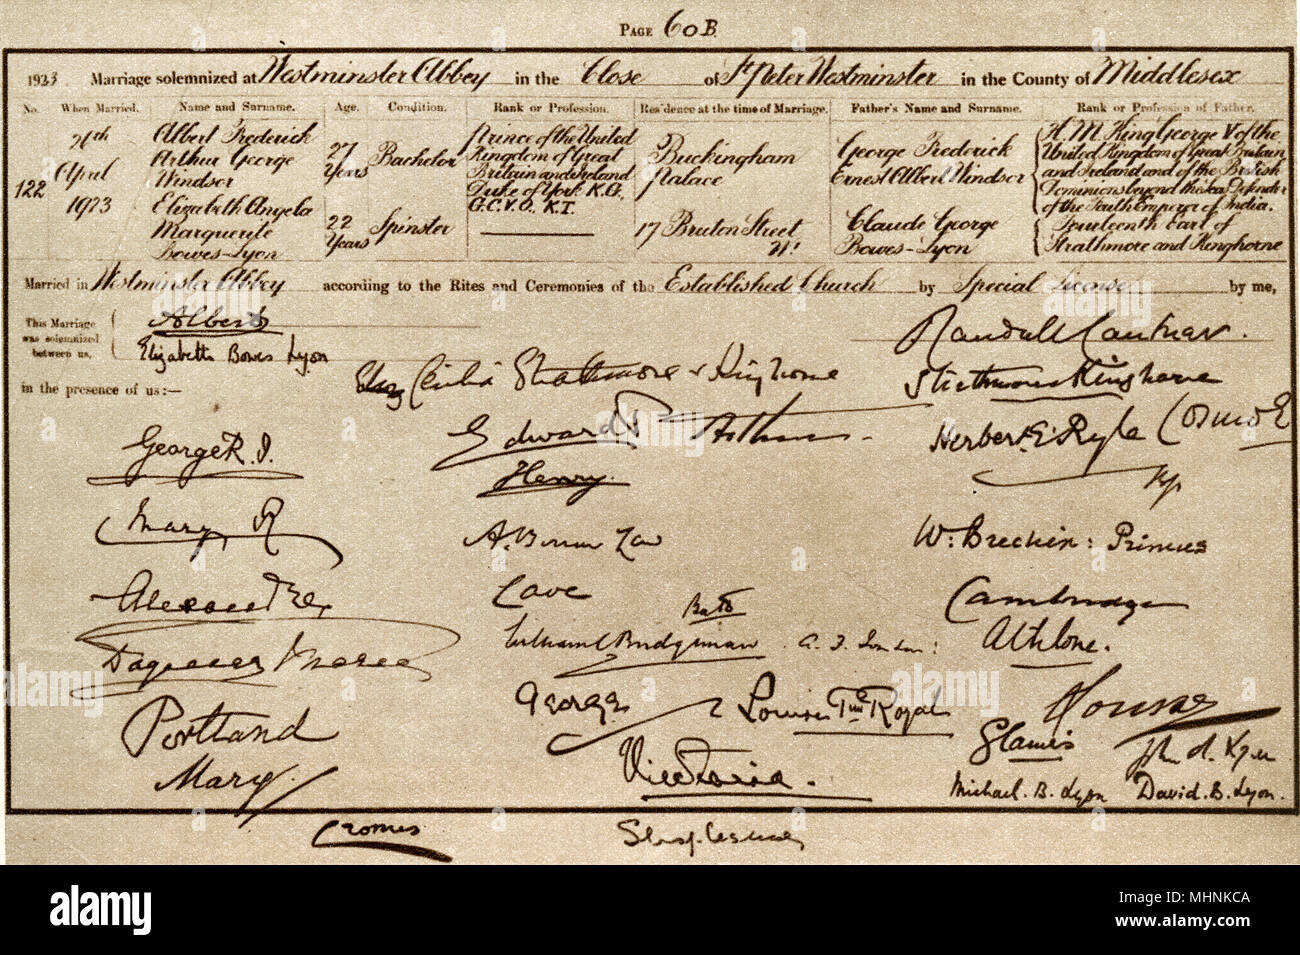 PAGE 60B.
1923 Marriage solemnized at Westminster Abbey in the Close of St Peter Westminster in the County of Middlesex
No. When Married. Name and Surname. Age. Condition. Rank or Profession. Residence at the time of Marriage. Father's Name and Surname. Rank or Profession of Father.
122
26th
April
1923
Albert Frederick
Arthur George
Windsor
27
Years
Bachelor
Prince of the United
Kingdom of Great
Britain and Ireland
Duke of York K.G.,
G.C.V.O., K.T.
Buckingham
Palace
George Frederick
Ernest Albert Windsor
H. M. King George V of the
United Kingdom of Great Britain
and Ireland and of the British
Dominions beyond the sea, Defender
of the Faith Emperor of India.
Elizabeth Angela
Marguerite
Bowes-Lyon
22
Years
Spinster
17 Bruton Street
W1
Claude George
Bowes-Lyon
Fourteenth Earl of
Strathmore and Kinghorne
Married in Westminster Abbey according to the Rites and Ceremonies of the Established Church by Special License by me,
This Marriage
was solemnized
between us,
Albert
Elizabeth Bowes Lyon
Randall Cantuar.
in the presence of us:—
Cecilia Strathmore & Kinghorne
Strathmore & Kinghorne
George R. I.
Edward P
Arthur.
Herbert E. Ryle
Henry.
Mary R
A. Bonar Law
W: Brechin: Primus
Alexandra
Cave
Cambridge
Dagmar Marie
William C Bridgeman
A. F. London:
Athlone.
Portland
George
Louise
Royal
Glamis
Mary.
Victoria.
Michael. B. Lyon
David. B. Lyon.
Cromer
alamy
Image ID: MHNKCA
www.alamy.com